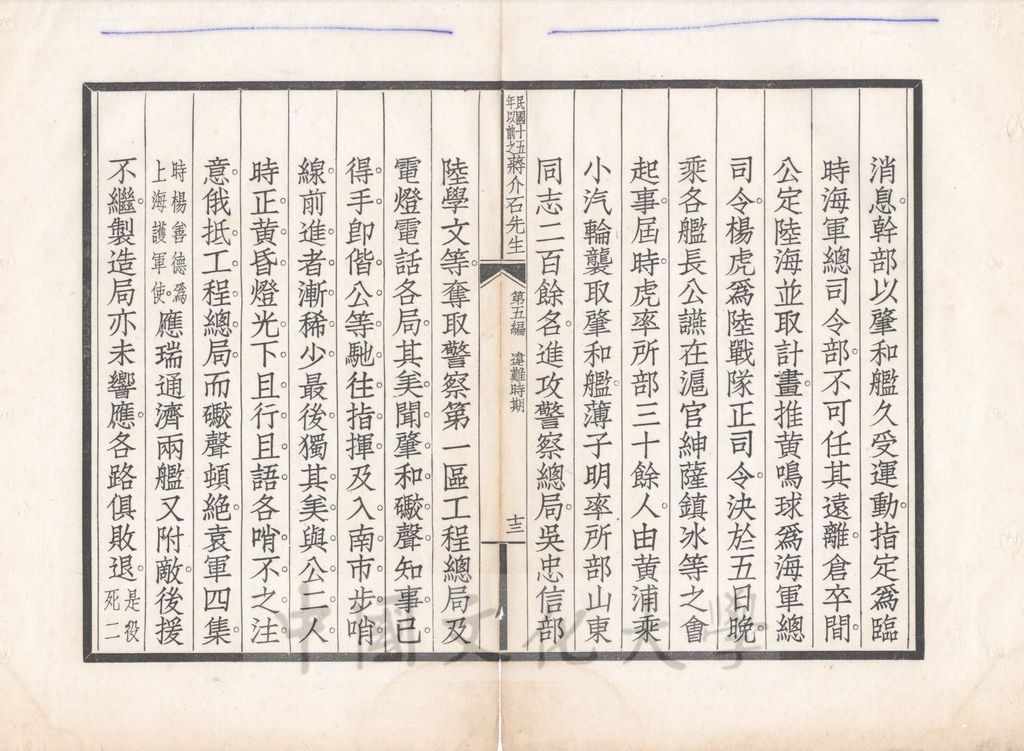 消息。幹部以肇和艦久受運動。指定爲臨
時海軍總司令部。不可任其遠離。倉卒間。
公定陸海並取計畫。推黃鳴球爲海軍總
司令。楊虎爲陸戰隊正司令。決於五日晚。
乘各艦長公讌在滬官紳薩鎮冰等之會
起事。屆時。虎率所部三十餘人。由黃浦乘
小汽輪襲取肇和艦。薄子明率所部山東
同志二百餘名。進攻警察總局。吳忠信部
民國十五年以前之蔣介石先生
第五編　違難時期
十三
陸學文等。奪取警察第一區工程總局及
電燈電話各局。其美聞肇和礮聲。知事已
得手。即偕公等馳往指揮。及入南市步哨
線。前進者漸稀少。最後獨其美與公二人。
時正黃昏。燈光下且行且語。各哨不之注
意。俄抵工程總局。而礮聲頓絕。袁軍四集。
時楊善德爲上海護軍使。應瑞通濟兩艦又附敵。後援
不繼。製造局亦未響應。各路俱敗退。是役死二
中國文化大學